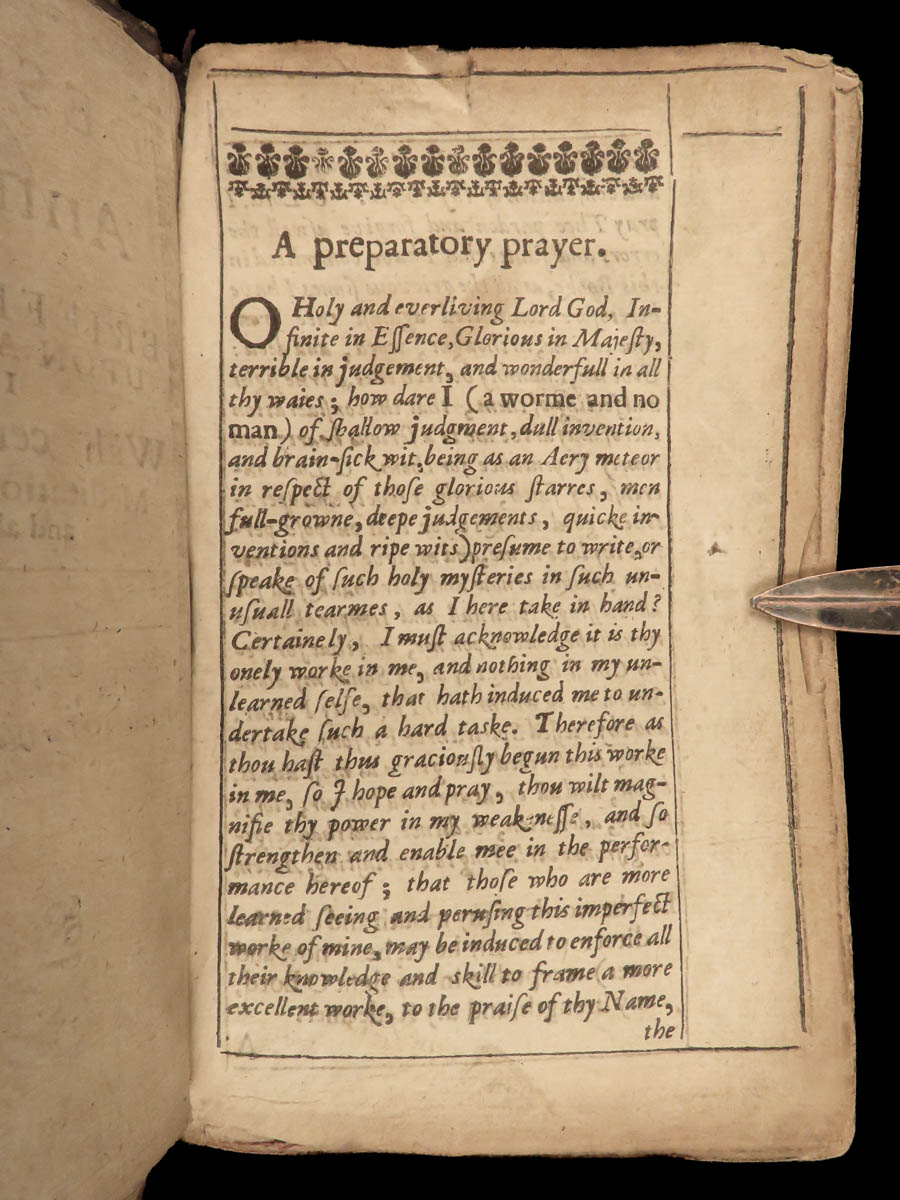 A preparatory prayer.
O Holy and everliving Lord God, In-
finite in Eſſence, Glorious in Majeſty,
terrible in judgement, and wonderfull in all
thy waies; how dare I (a worme and no
man) of ſhallow judgment, dull invention,
and brain-ſick wit, being as an Aery meteor
in reſpect of thoſe glorious ſtarres, men
full-growne, deepe judgements, quicke in-
ventions and ripe wits) preſume to write, or
ſpeake of ſuch holy myſteries in ſuch un-
uſuall tearmes, as I here take in hand?
Certainely, I muſt acknowledge it is thy
onely worke in me, and nothing in my un-
learned ſelfe, that hath induced me to un-
dertake ſuch a hard taske. Therefore as
thou haſt thus graciouſly begun this worke
in me, ſo I hope and pray, thou wilt mag-
nifie thy power in my weakneſſe, and ſo
ſtrengthen and enable mee in the perfor-
mance hereof; that thoſe who are more
learned ſeeing and peruſing this imperfect
worke of mine, may be induced to enforce all
their knowledge and skill to frame a more
excellent worke, to the praiſe of thy Name,
the